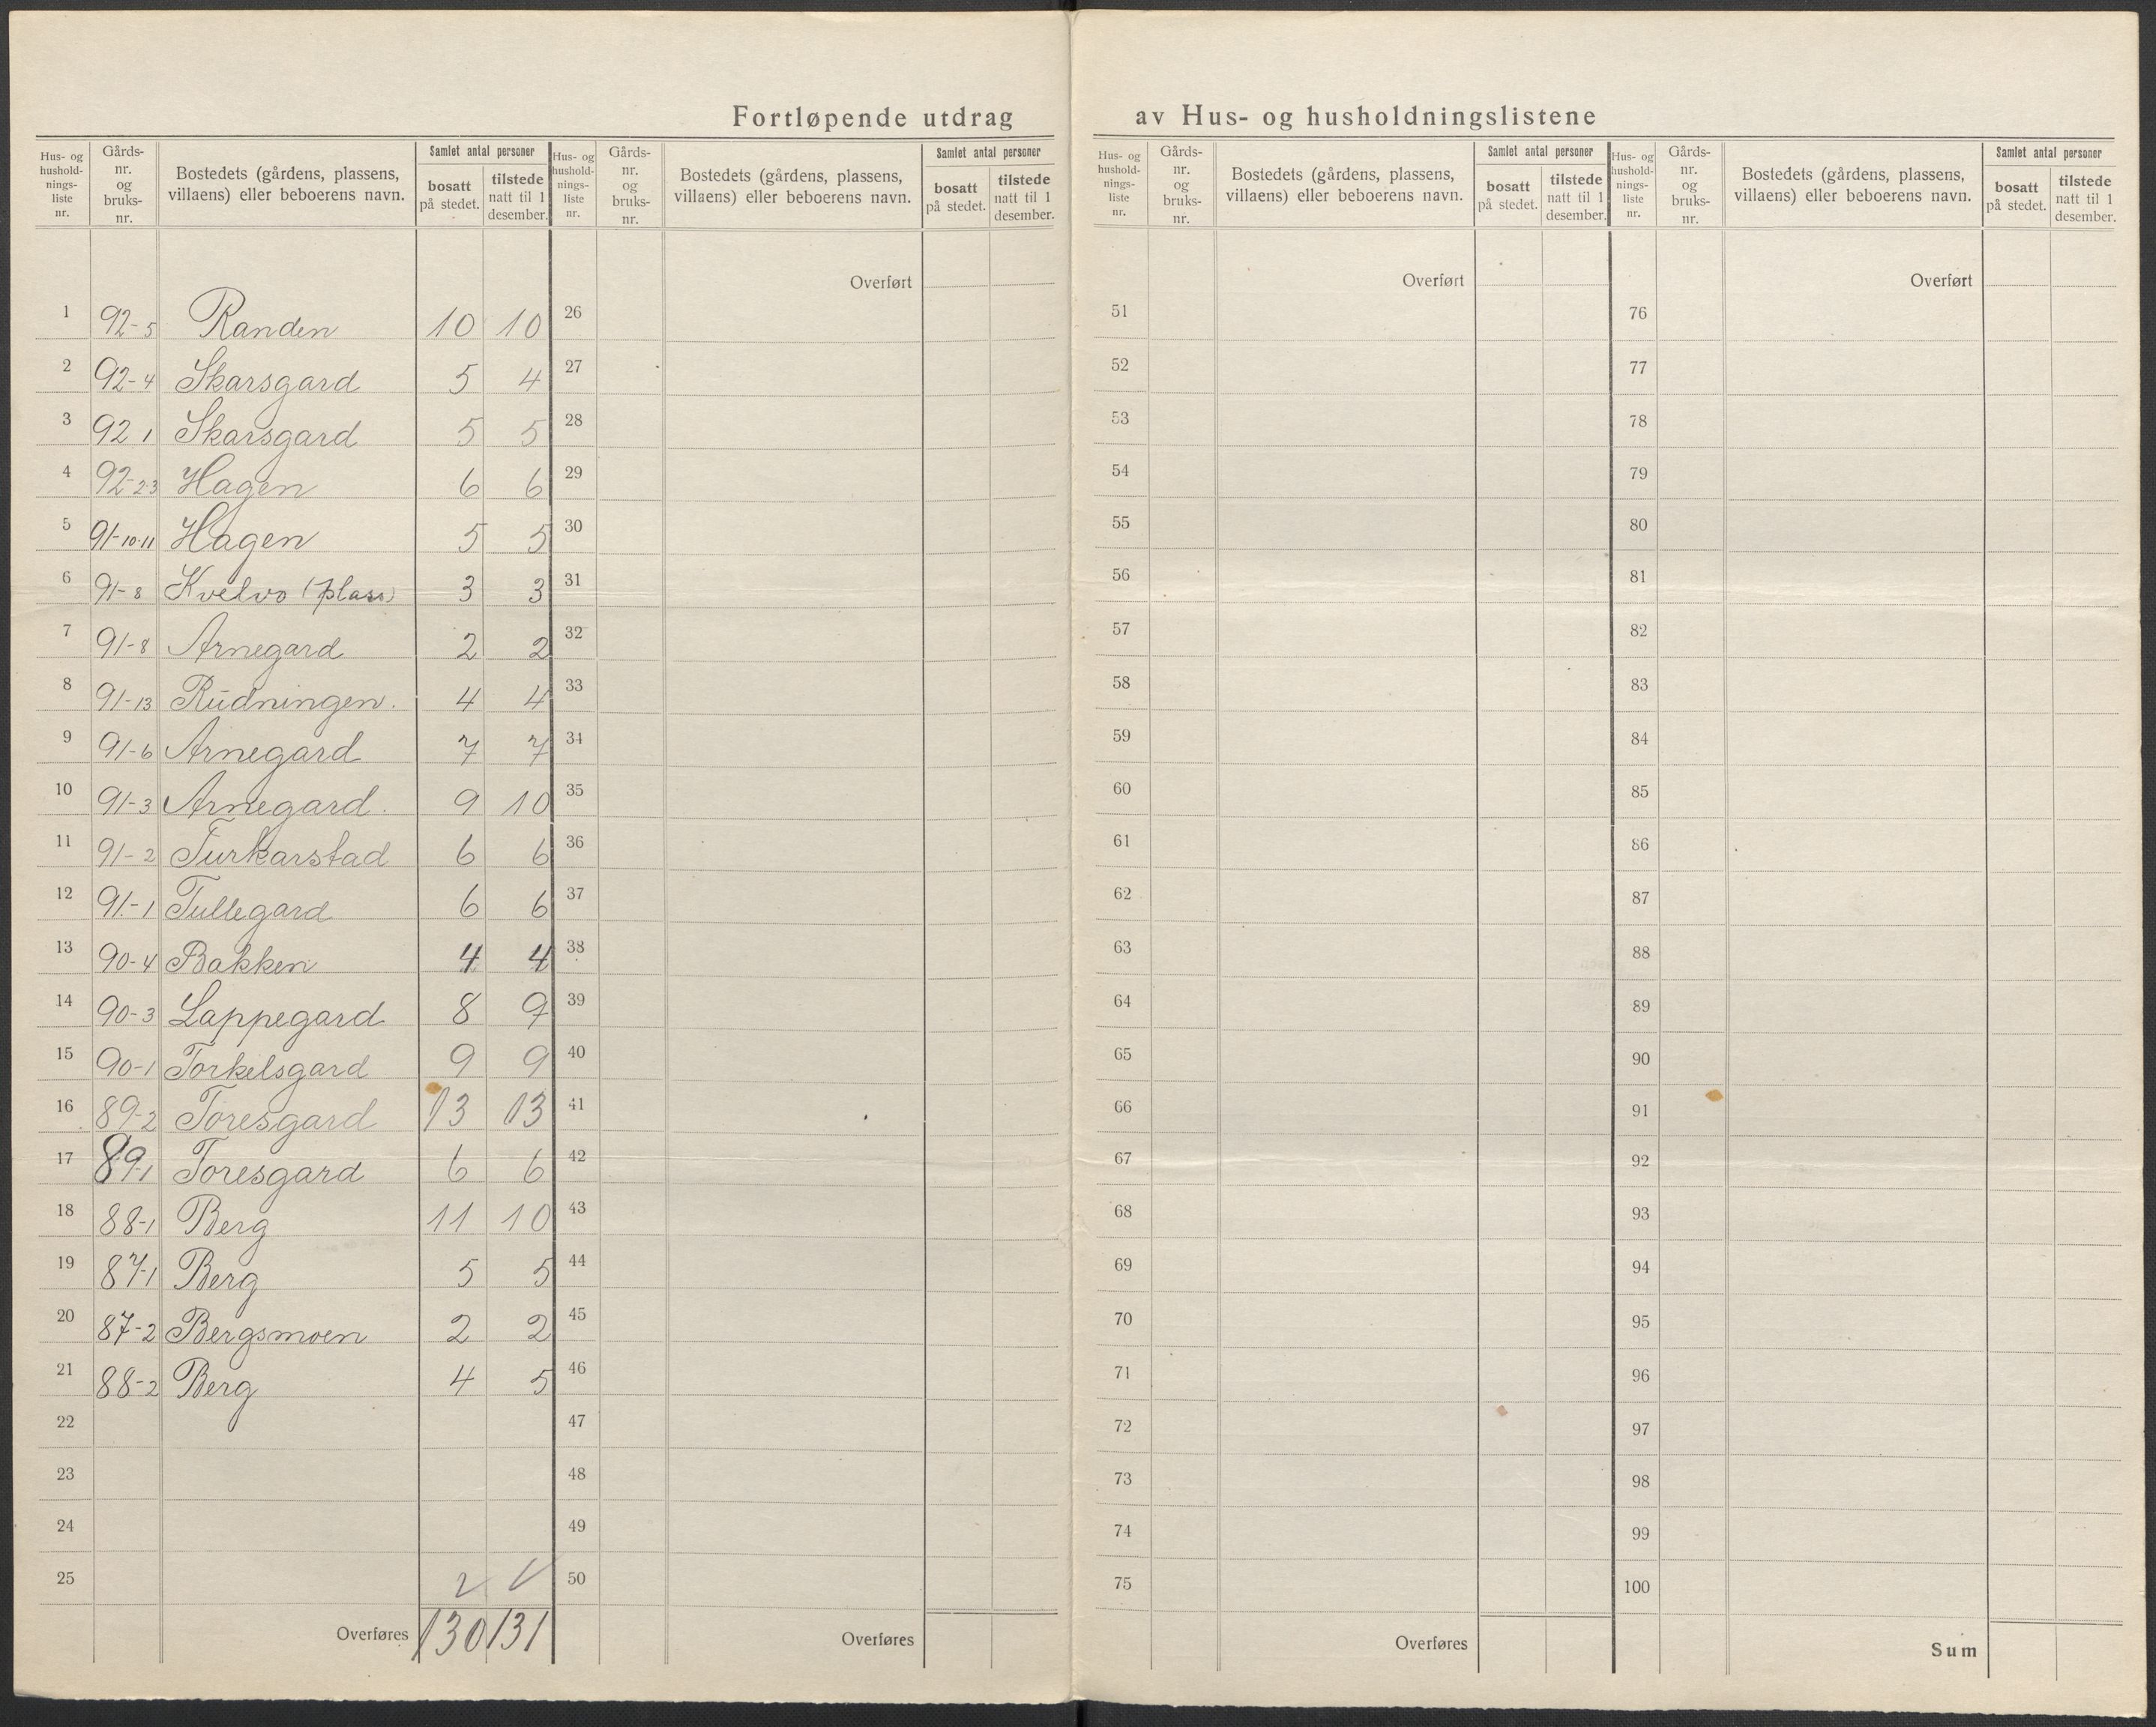 Fortløpende utdrag av Hus- og husholdningslistene
Hus- og hushold-nings-liste nr. Gårds-nr. og bruks-nr. Bostedets (gårdens, plassens, villaens) eller beboerens navn. Samlet antal personer bosatt på stedet. tilstede natt til 1 desember.
Hus- og hushold-nings-liste nr. Gårds-nr. og bruks-nr. Bostedets (gårdens, plassens, villaens) eller beboerens navn. Samlet antal personer bosatt på stedet. tilstede natt til 1 desember.
Hus- og hushold-nings-liste nr. Gårds-nr. og bruks-nr. Bostedets (gårdens, plassens, villaens) eller beboerens navn. Samlet antal personer bosatt på stedet. tilstede natt til 1 desember.
Hus- og hushold-nings-liste nr. Gårds-nr. og bruks-nr. Bostedets (gårdens, plassens, villaens) eller beboerens navn. Samlet antal personer bosatt på stedet. tilstede natt til 1 desember.
Overført Overført Overført
1 92-5 Randen 10 10 26 51 76
2 92-4 Skarsgard 5 4 27 52 77
3 92 1 Skarsgard 5 5 28 53 78
4 92-2-3 Hagen 6 6 29 54 79
5 91-10-11 Hagen 5 5 30 55 80
6 91-8 Kvelvo (plass) 3 3 31 56 81
7 91-8 Arnegard 2 2 32 57 82
8 91-13 Rudningen. 4 4 33 58 83
9 91-6 Arnegard 7 7 34 59 84
10 91-3 Arnegard. 9 10 35 60 85
11 91-2 Turkarstad 6 6 36 61 86
12 91-1 Tullegard 6 6 37 62 87
13 90-4 Bakken 4 4 38 63 88
14 90-3 Lappegard 8 9 39 64 89
15 90-1 Torkelsgard 9 9 40 65 90
16 89-2 Toresgard 13 13 41 66 91
17 89-1 Toresgard 6 6 42 67 92
18 88-1 Berg 11 10 43 68 93
19 87-1 Berg 5 5 44 69 94
20 87-2 Bergsmoen 2 2 45 70 95
21 88-2 Berg 4 5 46 71 96
22 47 72 97
23 48 73 98
24 49 74 99
25 50 75 100
Overføres 130 131 Overføres Overføres Sum